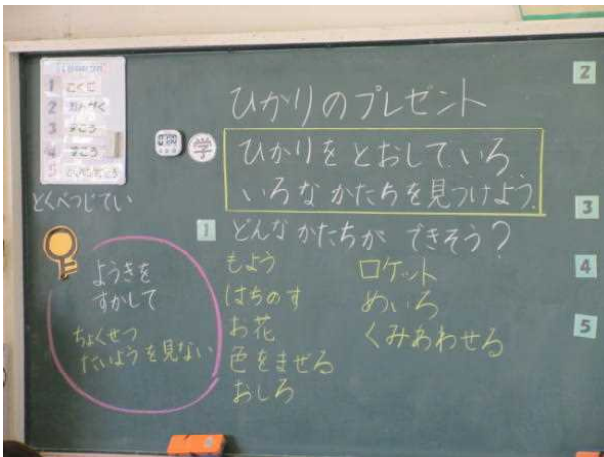 1 こくご
2 おんがく
3 ずこう
4 ずこう
5
とくべつじてい
学
ひかりのプレゼント
ひかりをとおしていろ
いろなかたちを見つけよう。
1 どんなかたちができそう?
もよう
はちのす
お花
色をまぜる
おしろ
ロケット
めいろ
くみあわせる
ようきを
すかして
ちょくせつ
たいようを見ない
2
3
4
5